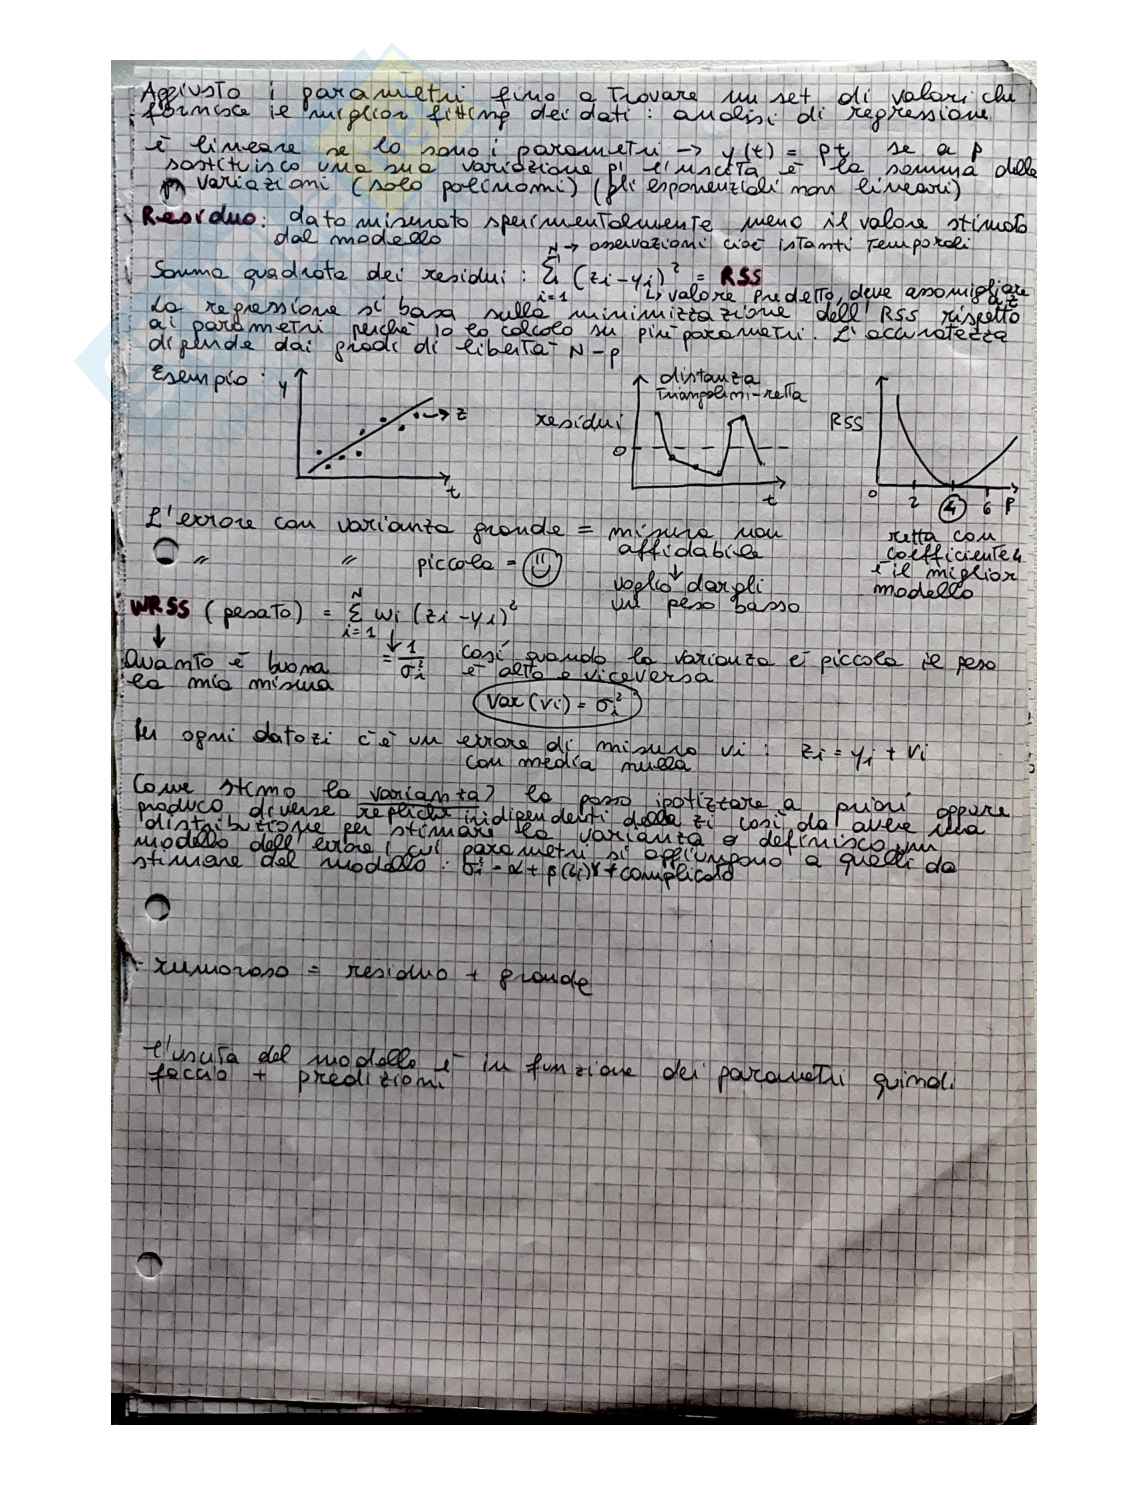 Aggiusto i parametri fino a trovare un set di valori che
fornisce il miglior fitting dei dati : analisi di regressione
è lineare se lo sono i parametri → y(t) = pt se a p
sostituisco una sua variazione p' l'uscita è la somma delle
variazioni (solo polinomi) (gli esponenziali non lineari)
Residuo: dato misurato sperimentalmente meno il valore stimato
dal modello
N → osservazioni cioè istanti temporali
Somma quadrata dei residui : Σ i=1 (zi - yi)² = RSS
↳ valore predetto, deve assomigliare a z
La regressione si basa sulla minimizzazione dell'RSS rispetto
ai parametri perché io lo calcolo su più parametri. L'accuratezza
dipende dai gradi di libertà N-p
Esempio : y → z t
residui 0 distanza
triangolini-retta t
RSS 0 2 4 6 P
retta con
coefficiente 4
è il miglior
modello
L'errore con varianza grande = misura non
affidabile
↓
voglio dargli
un peso basso
" " piccola =
WRSS (pesato) = Σ N i=1 wi (zi - yi)²
↓
Quanto è buona
la mia misura
↓ = 1/σi² così quando la varianza è piccola il peso
è alto e viceversa
Var(vi) = σi²
In ogni dato zi c'è un errore di misura vi : zi = yi + vi
con media nulla
Come stimo la varianza? la posso ipotizzare a priori oppure
produco diverse repliche indipendenti della zi così da avere una
distribuzione per stimare la varianza o definisco un
modello dell'errore i cui parametri si aggiungono a quelli da
stimare del modello : σi² = α + β(zi)^γ + complicato
- rumoroso = residuo + grande
- l'uscita del modello è in funzione dei parametri quindi
faccio + predizioni